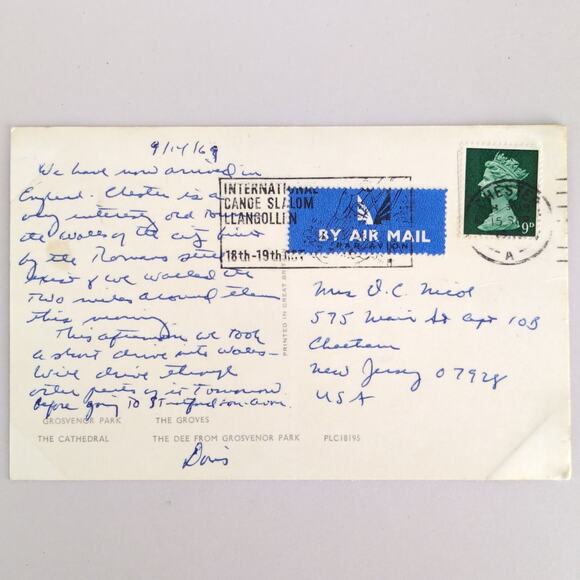 9/14/69
We have now arrived in
England. Chester is a
very interesty old To
the walls of the city built
by the Romans still
exist & we walked the
Two miles around them
this morning
This afternoon we took
a short drive into Wales –
We'll drive through
other parts of it Tomorrow
before going to Stratford on Avon.
Doris
GROSVENOR PARK THE GROVES
THE CATHEDRAL THE DEE FROM GROSVENOR PARK PLC18195
PRINTED IN GREAT
INTERNATIONAL
CANOE SLALOM
LLANGOLLEN
18th-19th OCT
BY AIR MAIL
PAR AVION
9D
CHESTER
15 S
A
Mrs D. C. Nicol
575 Main St Apt 10B
Chatham
New Jersey 07928
USA